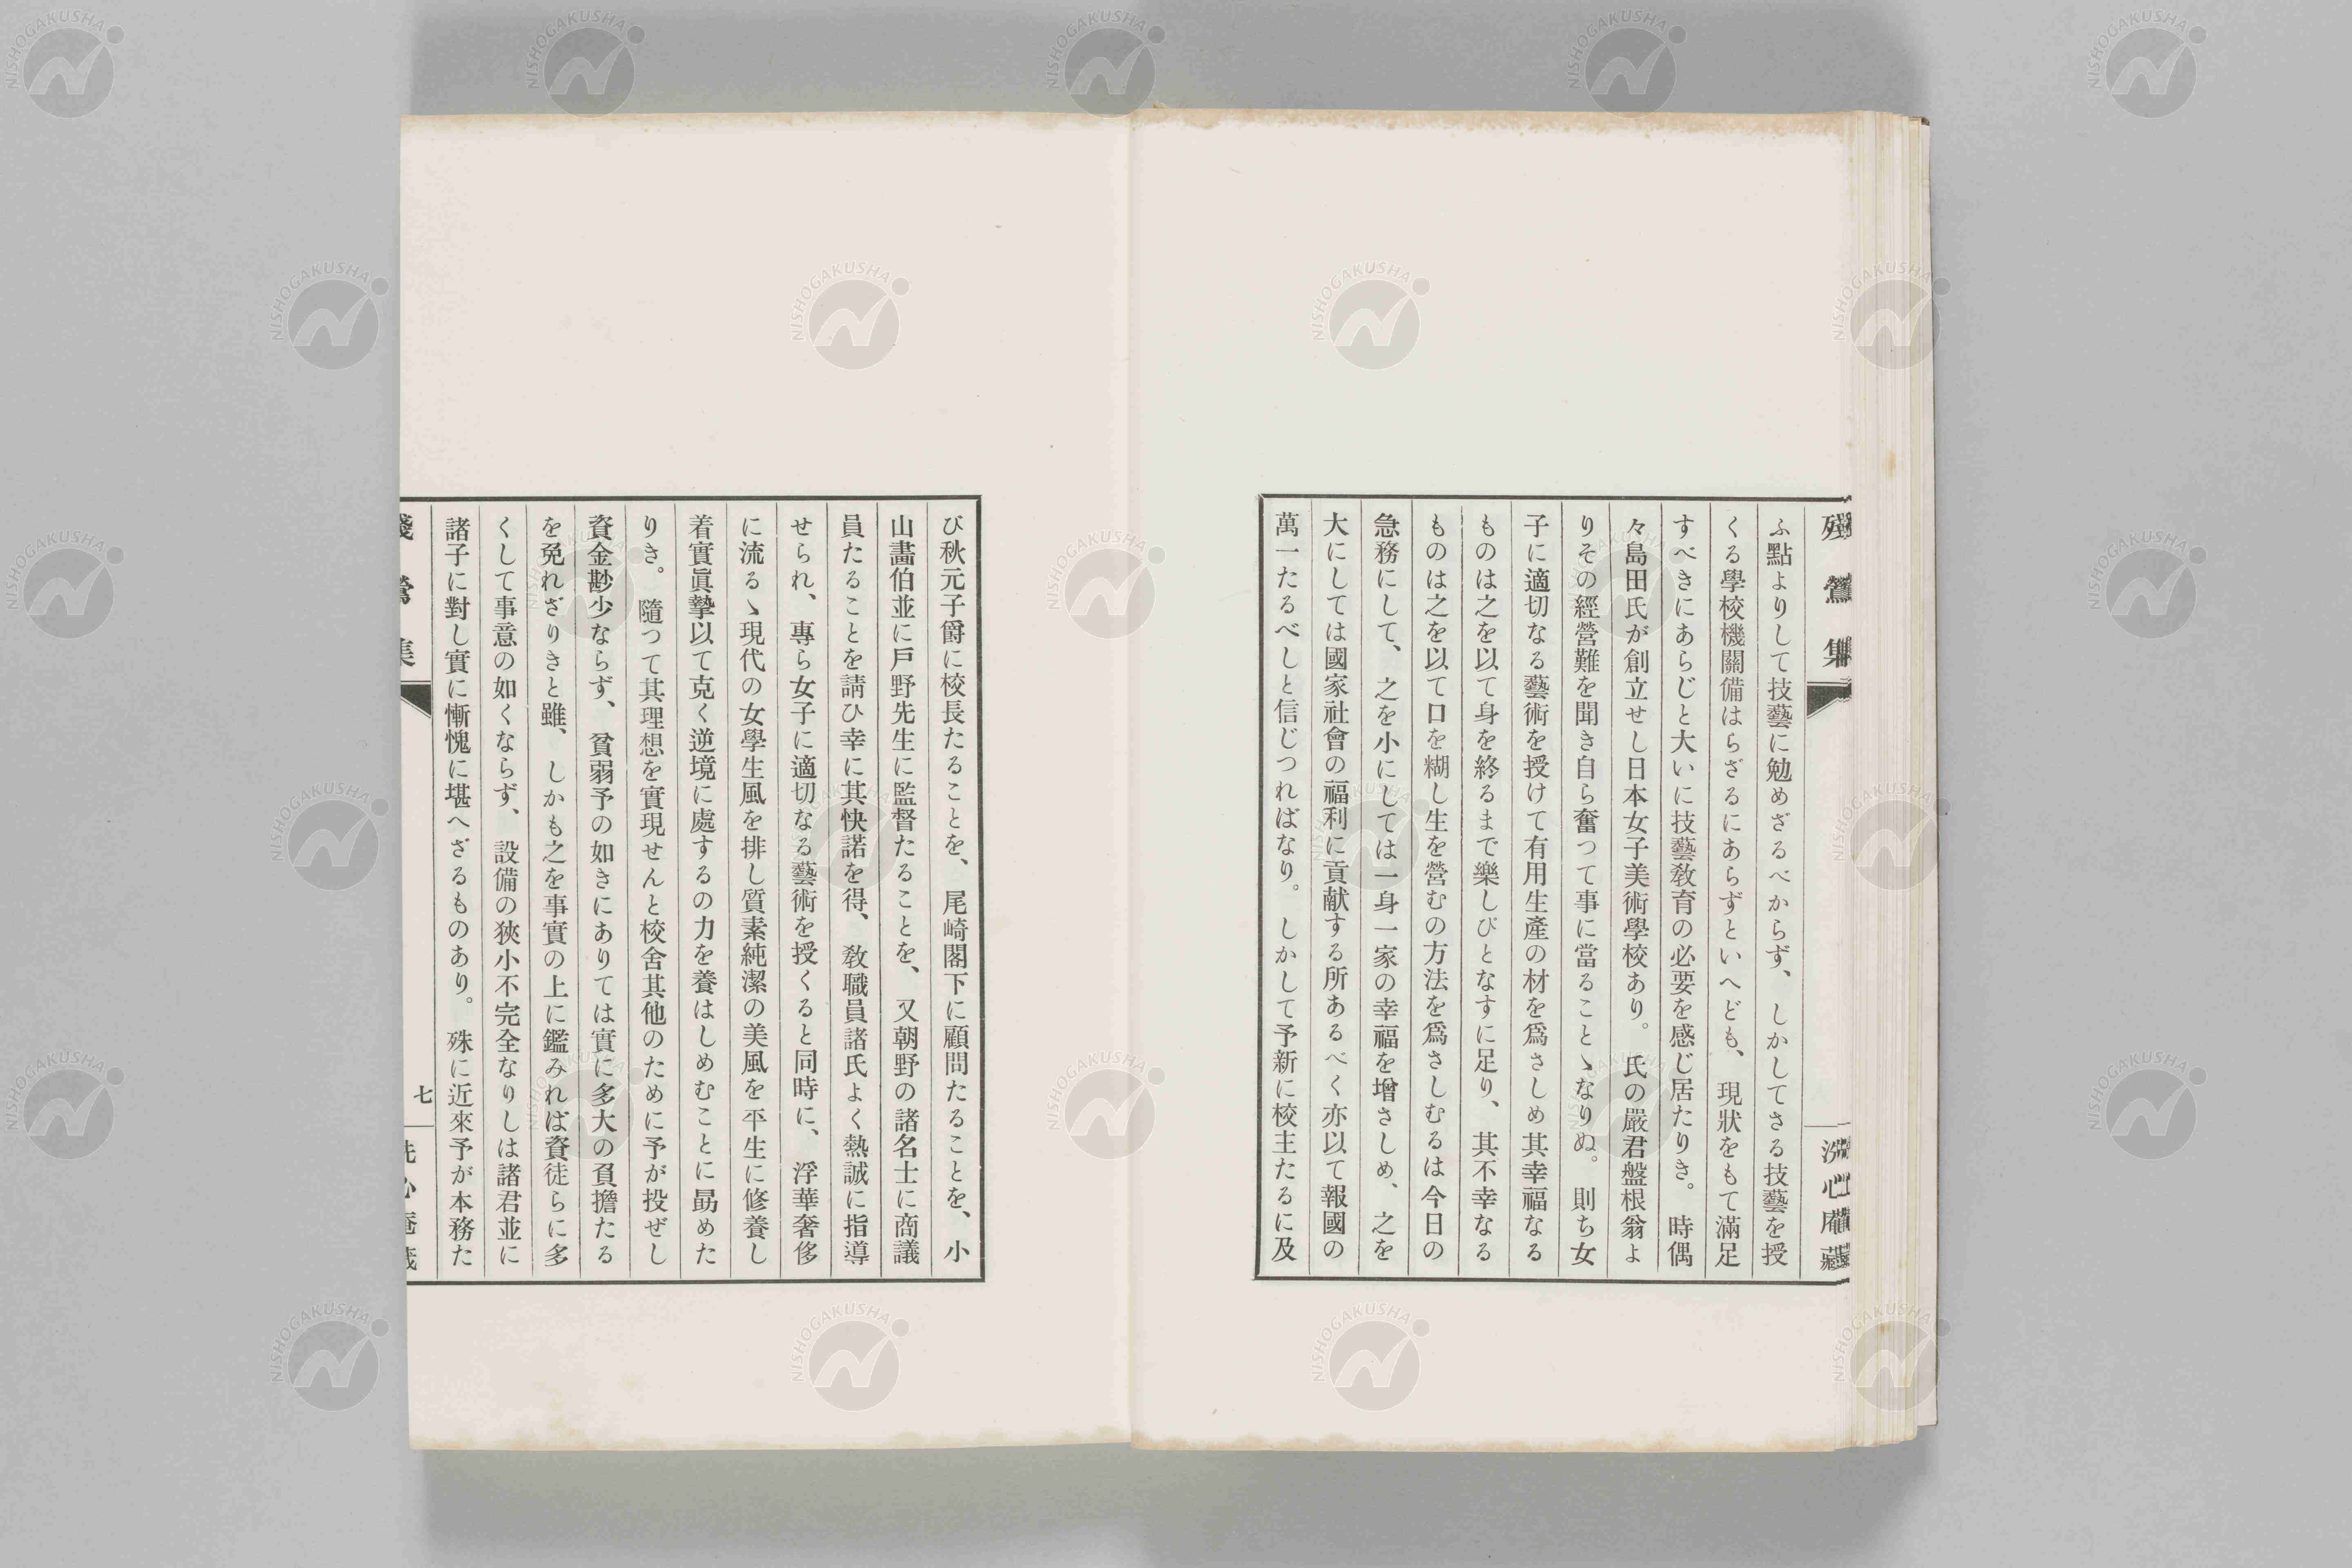 殘鶯集
洗心庵藏
ふ點よりして技藝に勉めざるべからず、しかしてさる技藝を授
くる學校機關備はらざるにあらずといへども、現狀をもて滿足
すべきにあらじと大いに技藝敎育の必要を感じ居たりき。時偶
々島田氏が創立せし日本女子美術學校あり。氏の嚴君盤根翁よ
りその經營難を聞き自ら奮つて事に當ることゝなりぬ。則ち女
子に適切なる藝術を授けて有用生產の材を爲さしめ其幸福なる
ものは之を以て身を終るまで樂しびとなすに足り、其不幸なる
ものは之を以て口を糊し生を營むの方法を爲さしむるは今日の
急務にして、之を小にしては一身一家の幸福を增さしめ、之を
大にしては國家社會の福利に貢献する所あるべく亦以て報國の
萬一たるべしと信じつればなり。しかして予新に校主たるに及
び秋元子爵に校長たることを、尾崎閣下に顧問たることを、小
山畵伯並に戶野先生に監督たることを、又朝野の諸名士に商議
員たることを請ひ幸に其快諾を得、敎職員諸氏よく熱誠に指導
せられ、專ら女子に適切なる藝術を授くると同時に、浮華奢侈
に流るゝ現代の女學生風を排し質素純潔の美風を平生に修養し
着實眞摯以て克く逆境に處するの力を養はしめむことに勗めた
りき。隨つて其理想を實現せんと校舍其他のために予が投ぜし
資金尠少ならず、貧弱予の如きにありては實に多大の負擔たる
を免れざりきと雖、しかも之を事實の上に鑑みれば資徒らに多
くして事意の如くならず、設備の狹小不完全なりしは諸君並に
諸子に對し實に慚愧に堪へざるものあり。殊に近來予が本務た
殘鶯集
七
洗心庵藏